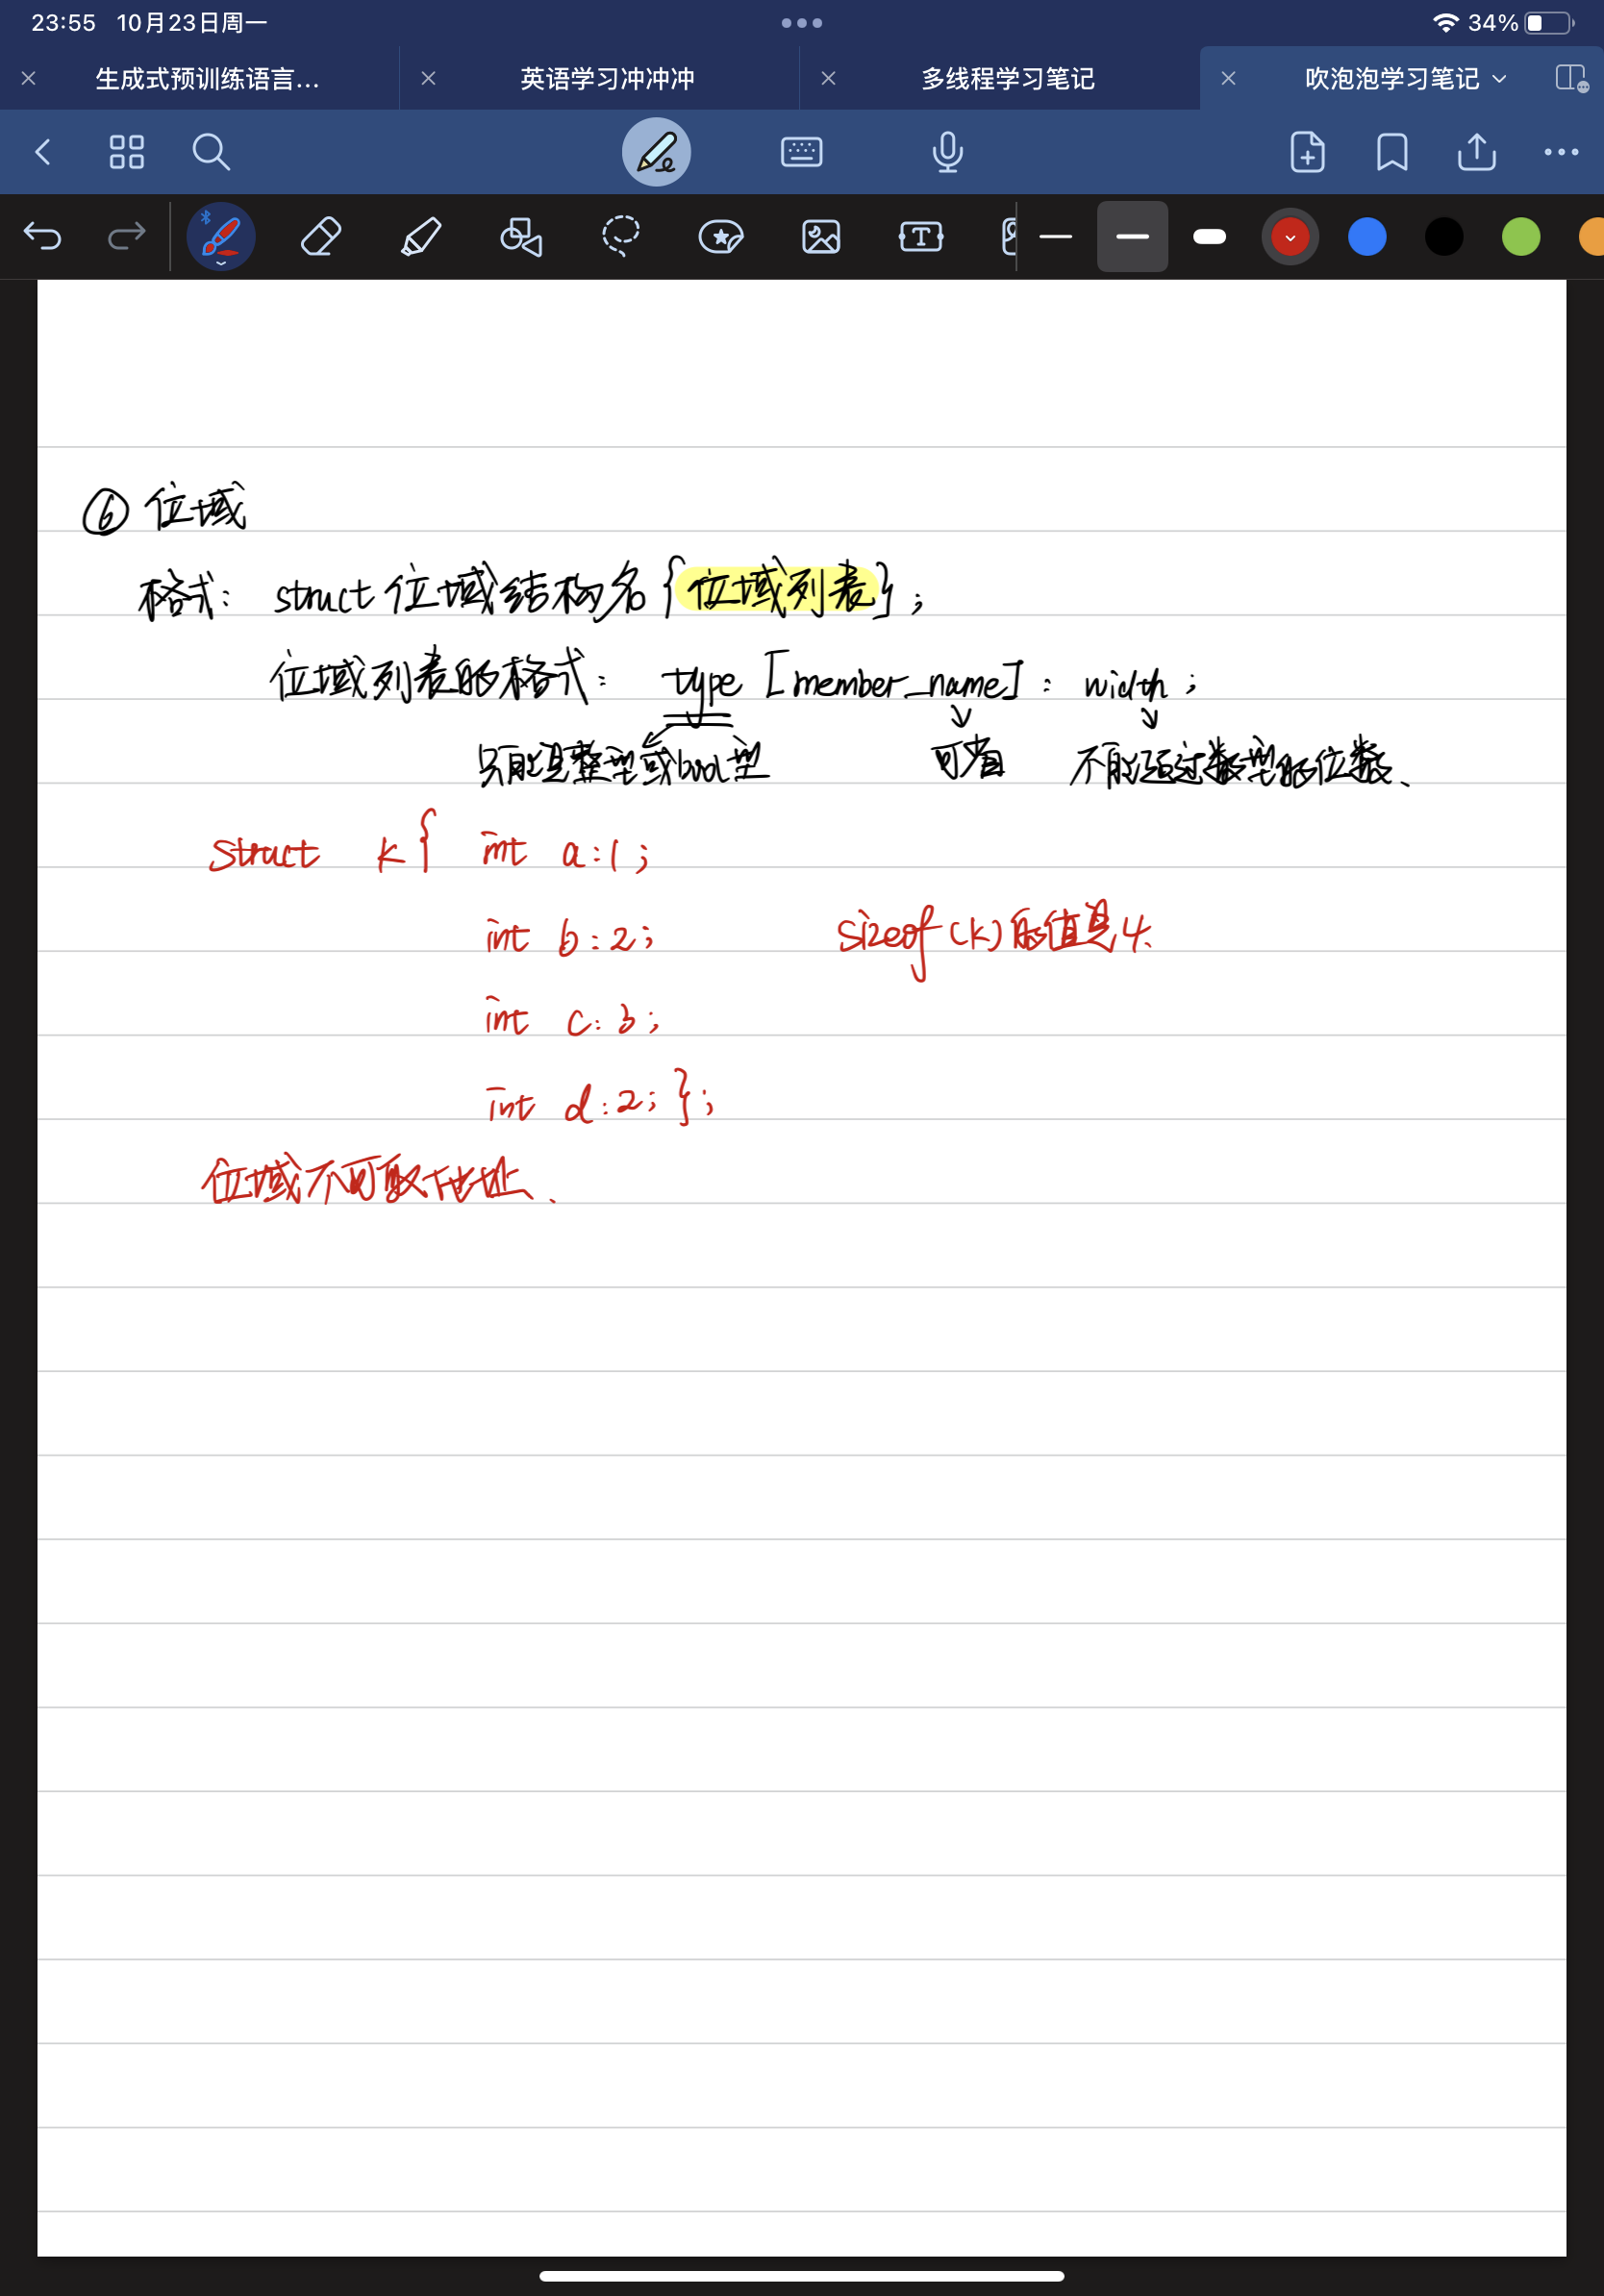 23:55 10月23日周一
34%
生成式预训练语言...
英语学习冲冲冲
多线程学习笔记
吹泡泡学习笔记
⑥ 位域
格式: struct 位域结构名 {位域列表};
位域列表的格式: type [member_name] : width ;
只能是整型或bool型 可省 不能超过类型的位数、
struct k { int a:1;
int b:2; sizeof(k)的值是4.
int c:3;
int d:2; };
位域不可取地址、